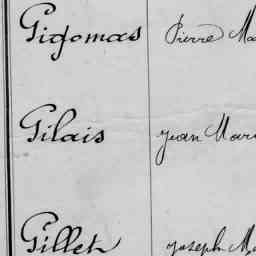 Gigomas Pierre Ma
Gilais Jean Mari
Gillet Joseph M